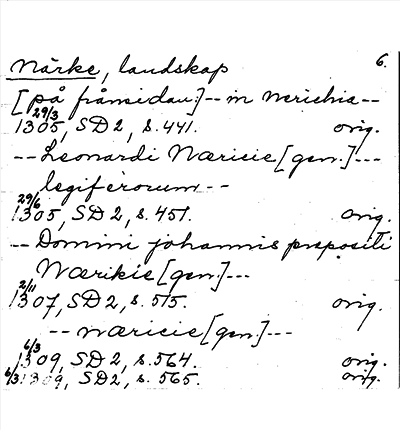 6.
Närke, landskap
[på frånsidan:] -- in Nerichia --
29/3 1305, SD 2, s. 441. orig.
-- Leonardi Næricie [gen.] ---
legiferorum --
29/6 1305, SD 2, s. 451. orig.
-- Domini johannis prepositi
Nærikie [gen.] ---
2/11 1307, SD 2, s. 515. orig.
-- næricie [gen] ---
6/3 1309, SD 2, s. 564. orig.
6/3 1309, SD 2, s. 565. orig.